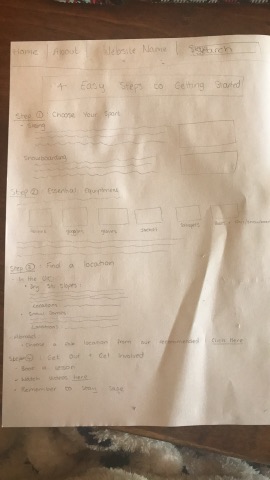 Home About Website Name Search
4 Easy Steps to Getting Started
Step ① Choose Your Sport
• Skiing
Snowboarding
Step ② : Essential Equipment
goggles gloves
Step ③ : Find a location
In the UK:
• Dry Ski Slopes:
Locations
• Snow Domes
Locations
• Choose a ski location from our recommended Click Here
Step ④ : Get Out + Get Involved
- Book a lesson
- Watch videos here
- Remember to stay safe